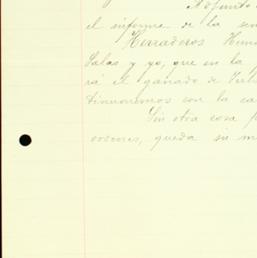 Adjunto
el informe de la sem
Herraderos
Salas y yo, que en la
rá el ganado de
tinuaremos con la ca
Sin otra cosa p
ordenes, queda su m